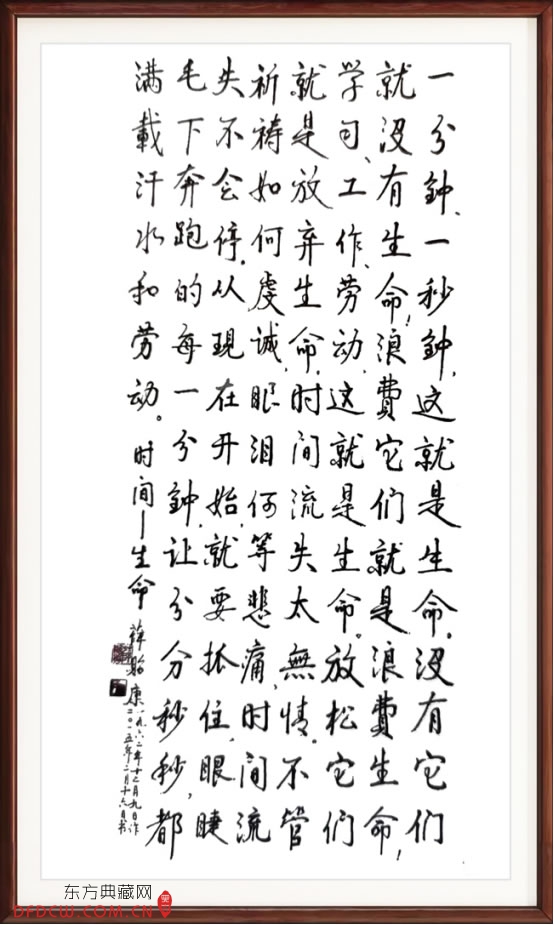 一分鈡、一秒鈡,这就是生命。没有它们
就没有生命,浪費它们就是浪費生命!
学习、工作、劳动,这就是生命。放松它们
就是放弃生命,时间流失太無情。不管
祈祷如何虔诚,眼泪何等悲痛,时间流
失不会停。从現在开始,就要抓住,眼睫
毛下奔跑的每一分鈡,让分分秒秒,都
满載汗水和劳动。时间—生命 薛贻康
一九六二年十二月九日作
二〇一五年二月十六日书
东方典藏网
DFDCW.COM.CN